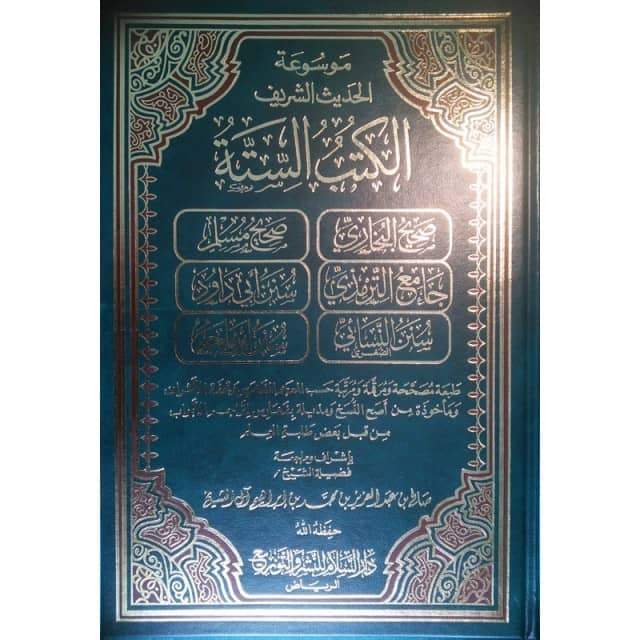 موسوعة
الحديث الشريف
الكتب الستة
صحيح البخاري
صحيح مسلم
جامع الترمذي
سنن أبي داود
سنن النسائي
الصغرى
سنن ابن ماجه
طبعة مصححة ومرقمة ومرتبة حسب المعجم المفهرس وتحفة الأشراف
ومأخوذة من أصح النسخ ومذيلة
من قبل بعض طلبة العلم
بإشراف ومراجعة
فضيلة الشيخ /
صالح بن عبد العزيز بن محمد بن إبراهيم آل الشيخ
حفظه الله
دار السلام للنشر والتوزيع
الرياض